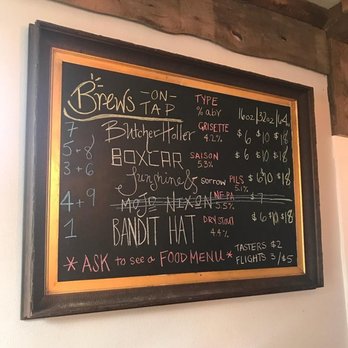 Brews -ON- TAP TYPE % abv 16oz | 32oz | 64oz
7 Butcher Holler GRISETTE 4.2% $6 $10 $18
5+8 BOXCAR SAISON 5.3% $6 $10 $18
3+6 Sunshine & sorrow PILS 5.1% $6 $10 $18
4+9 MOJO NIXON NE PA 5.5% $7
1 BANDIT HAT DRY STOUT 4.4% $6 $10 $18
* ASK to see a FOOD MENU *
TASTERS $2
FLIGHTS 3/$5